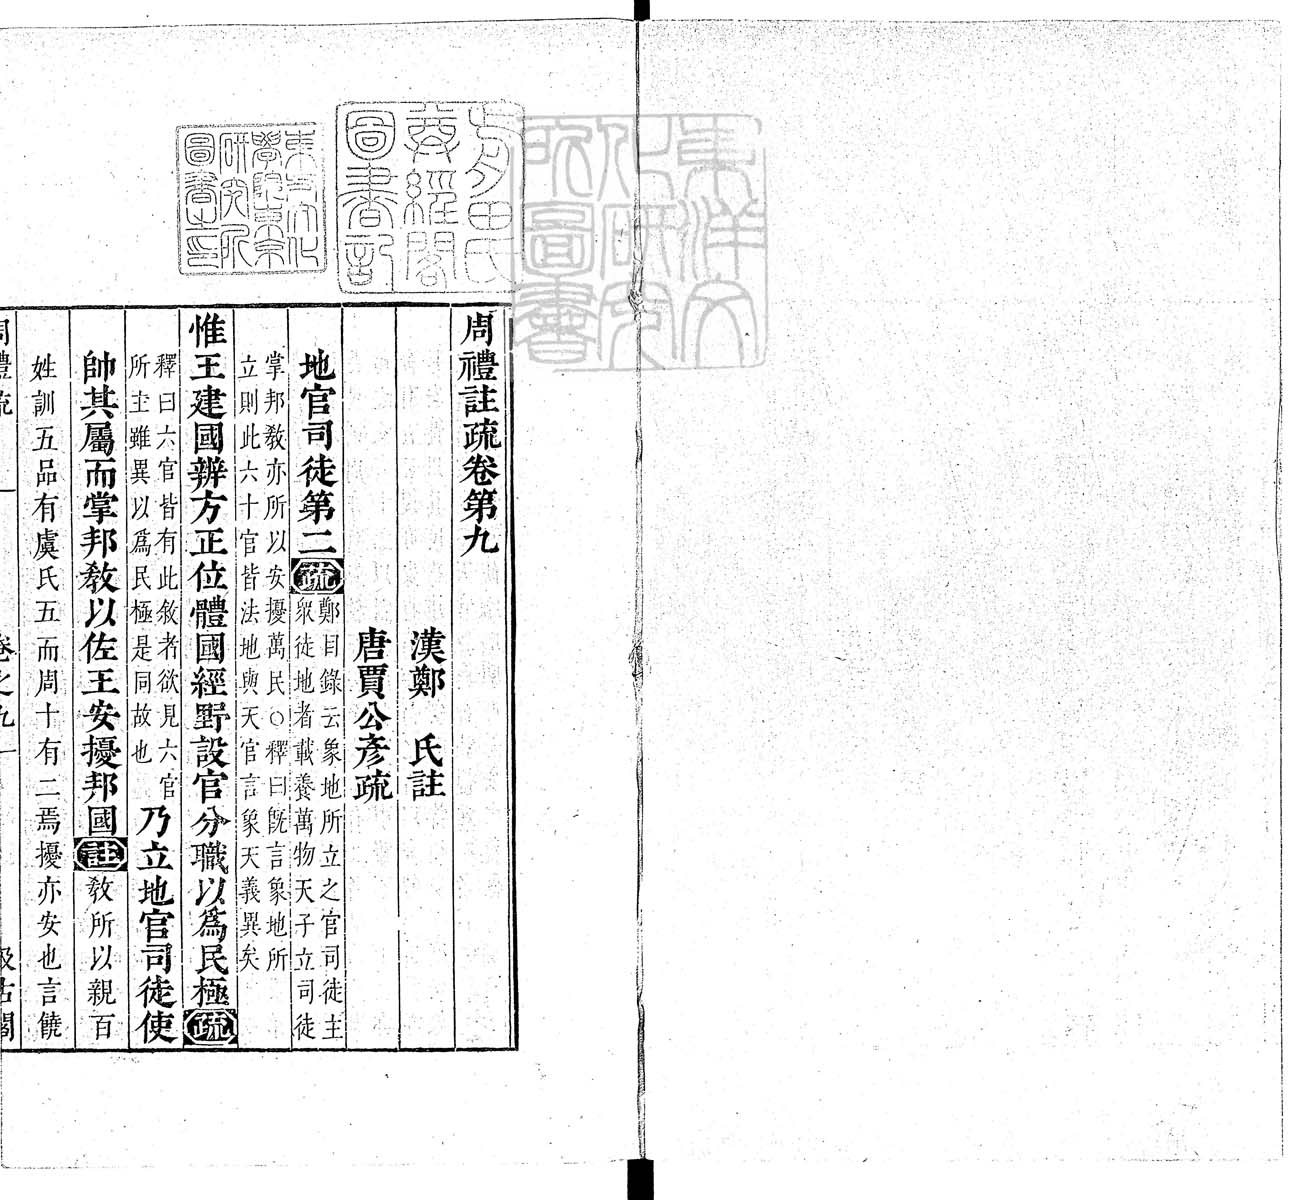 周禮註疏卷第九
漢鄭　氏註
唐賈公彥疏
地官司徒第二疏鄭目錄云象地所立之官司徒主
眾徒地者載養萬物天子立司徒
掌邦敎亦所以安擾萬民○釋曰旣言象地所
立則此六十官皆法地與天官言象天義異矣
惟王建國辨方正位體國經野設官分職以爲民極疏
釋曰六官皆有此敘者欲見六官
所主雖異以爲民極是同故也
乃立地官司徒使
帥其屬而掌邦敎以佐王安擾邦國註敎所以親百
姓訓五品有虞氏五而周十有二焉擾亦安也言饒
周禮疏　卷之九　一　汲古閣
東方文化
學院東京
研究所
圖書之印
前田氏
尊經閣
圖書記
東洋文
化研究
所圖書